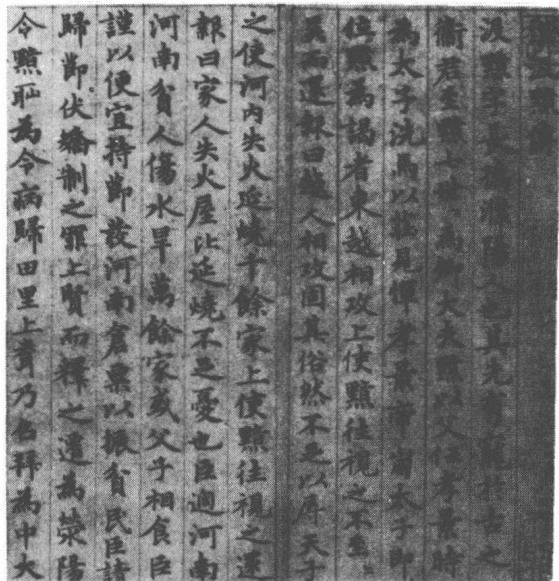 汲黯字長孺濮陽人也其先有寵於古之
衛君至黯十世〻為卿大夫黯以父任孝景時
為太子洗馬以莊見憚孝景帝崩太子即
位黯為謁者東越相攻上使黯往視之不至〻
吳而還報曰越人相攻固其俗然不足以辱天子
之使河內失火延燒千餘家上使黯往視之還
報曰家人失火屋比延燒不足憂也臣過河南
河南貧人傷水旱萬餘家或父子相食臣
謹以便宜持節發河南倉粟以振貧民臣請
歸節伏矯制之罪上賢而釋之遷為滎陽
令黯恥為令病歸田里上聞乃召拜為中大